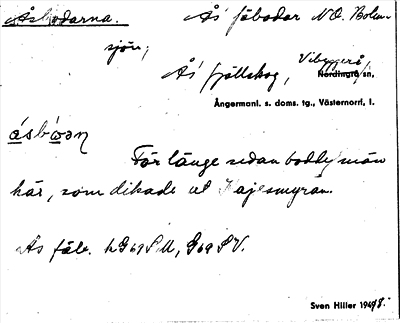 Åsbodarna. Ås' fäbodar NO. Bolen-
sjön,
Ås' fjällskog, Vibyggerå
Nordingrå sn,
Ångermanl. s. doms. tg., Västernorrl. l.
åsbóɷn
För länge sedan bodde män
här, som dikade ut Kajesmyran.
Ås fäb. hG69SU, G69SV.
Sven Hiller 1948.